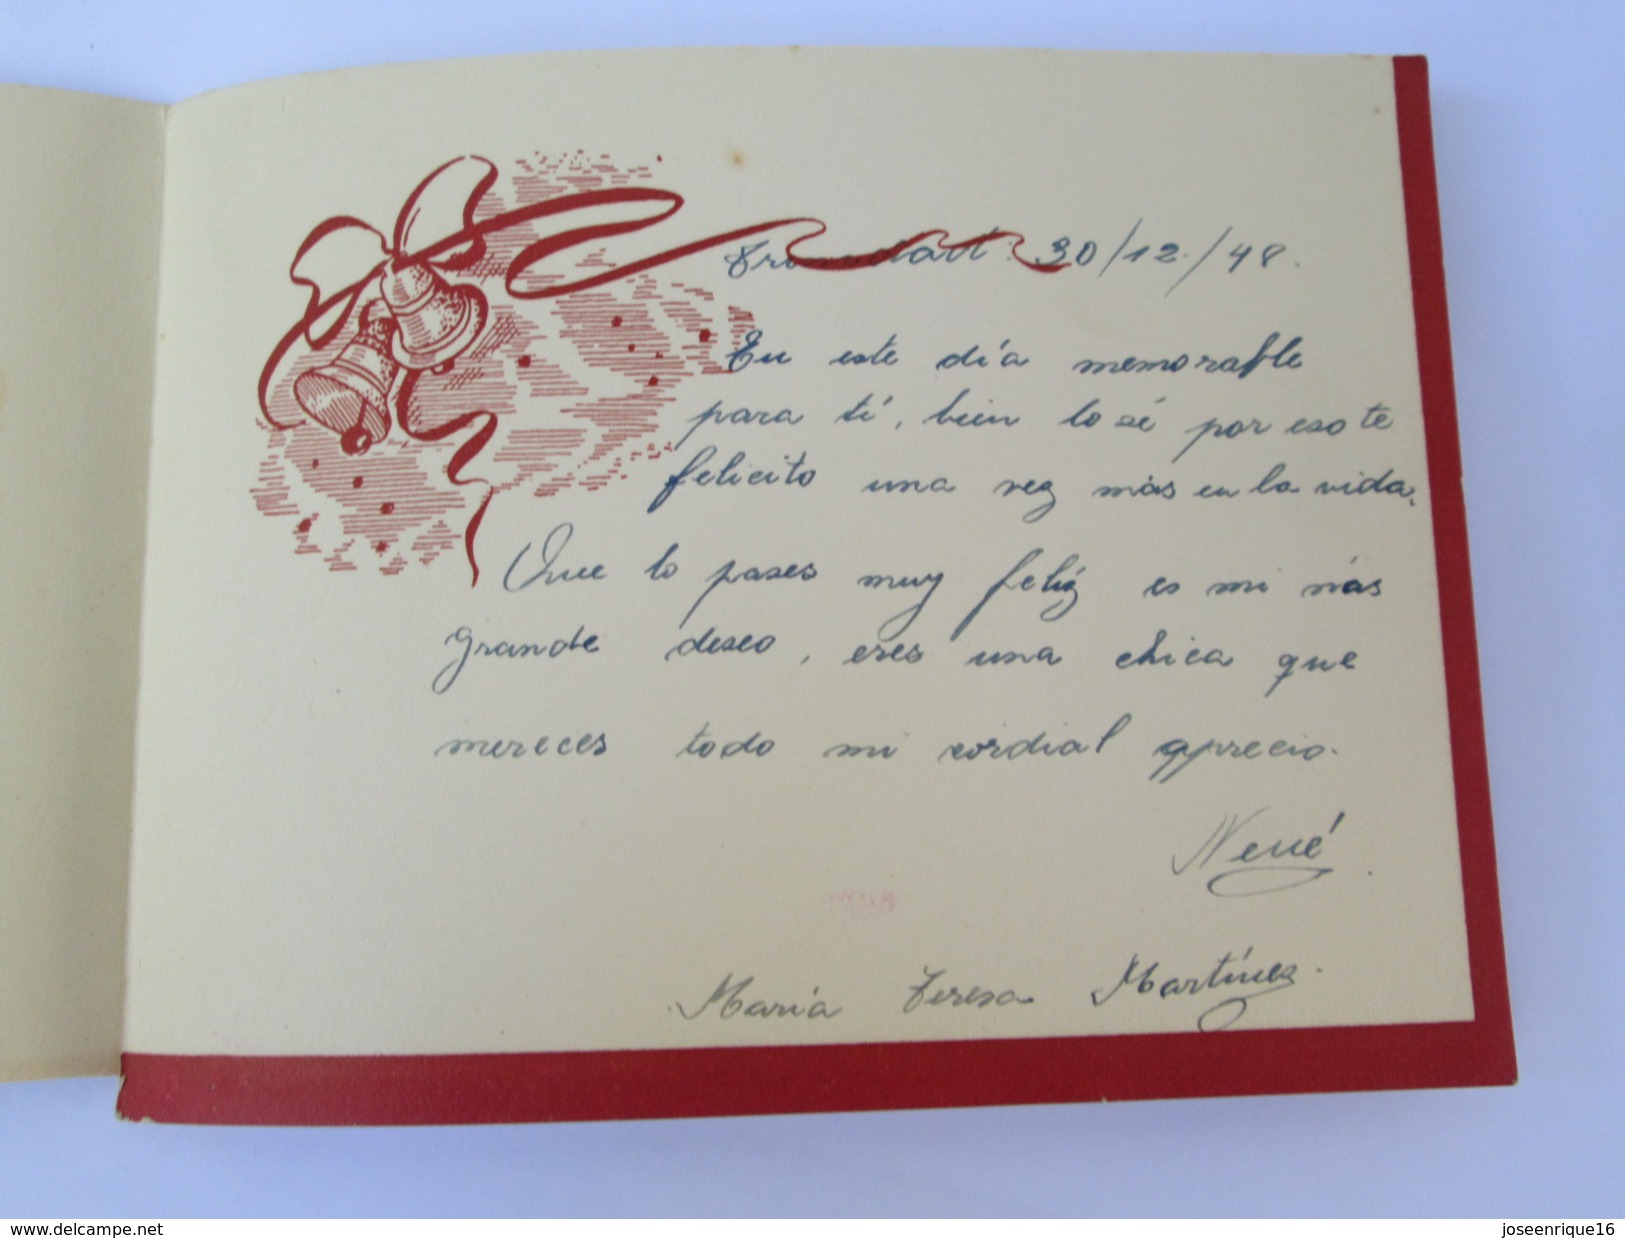 Trinidad. 30/12./48.
En este día memorable
para tí, bien lo sé por eso te
felicito una vez más en la vida.
Que lo pases muy felíz es mi más
grande deseo, eres una chica que
mereces todo mi cordial aprecio.
Nené
María Teresa Martínez.
www.delcampe.net
joseenrique16